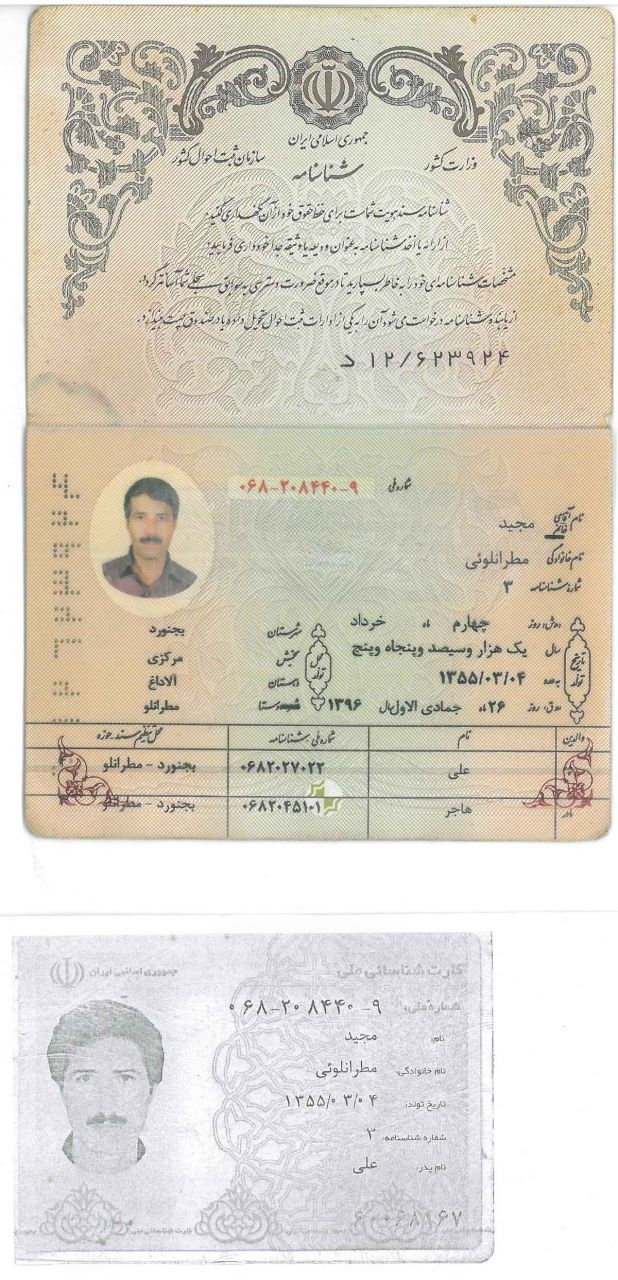 جمهوری اسلامی ایران
وزارت کشور
سازمان ثبت احوال کشور
شناسنامه
شناسنامه سند هویت شماست برای حفظ حقوق خود از آن نگهداری کنید.
از ارائه یا اخذ شناسنامه به عنوان ودیعه یا وثیقه جداً خودداری فرمایید.
مشخصات شناسنامه‌ای خود را به خاطر بسپارید تا در موقع ضرورت دسترسی به سوابق سجلی شما آسانتر گردد.
از یابنده شناسنامه درخواست می‌شود آن را به یکی از ادارات ثبت احوال تحویل داده یا در صندوق پست بیندازد.
د ۱۲/۶۲۳۹۲۴
شماره ملی ۰۶۸-۲۰۸۴۴۰-۹
نام آقای خانم مجید
نام خانوادگی مطرانلوئی
شماره شناسنامه ۳
روز چهارم ماه خرداد
سال یک هزار وسیصد وپنجاه وپنج
۱۳۵۵/۰۳/۰۴
روز ۲۶ ماه جمادی الاول سال ۱۳۹۶
تاریخ تولد
محل تولد
شهرستان بجنورد
بخش مرکزی
دهستان آلاداغ
مطرانلو
والدین نام شماره ملی شناسنامه محل تنظیم سند حوزه
علی ۰۶۸۲۰۲۷۰۲۲ بجنورد - مطرانلو
مادر هاجر ۰۶۸۲۰۴۵۱۰۱ بجنورد - مطرانلو
کارت شناسائی ملی
جمهوری اسلامی ایران
شماره ملی: ۰۶۸-۲۰۸۴۴۰-۹
نام: مجید
نام خانوادگی: مطرانلوئی
تاریخ تولد: ۱۳۵۵/۰۳/۰۴
شماره شناسنامه: ۳
نام پدر: علی